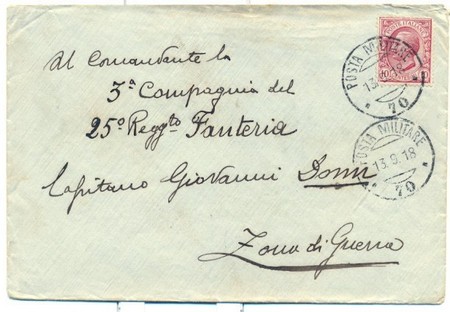 POSTE ITALIANE
POSTA MILITARE
13.9.18
70
POSTA MILITARE
13.9.18
70
Al Comandante la
3ª Compagnia del
25º Reggto Fanteria
Capitano Giovanni
Zona di Guerra